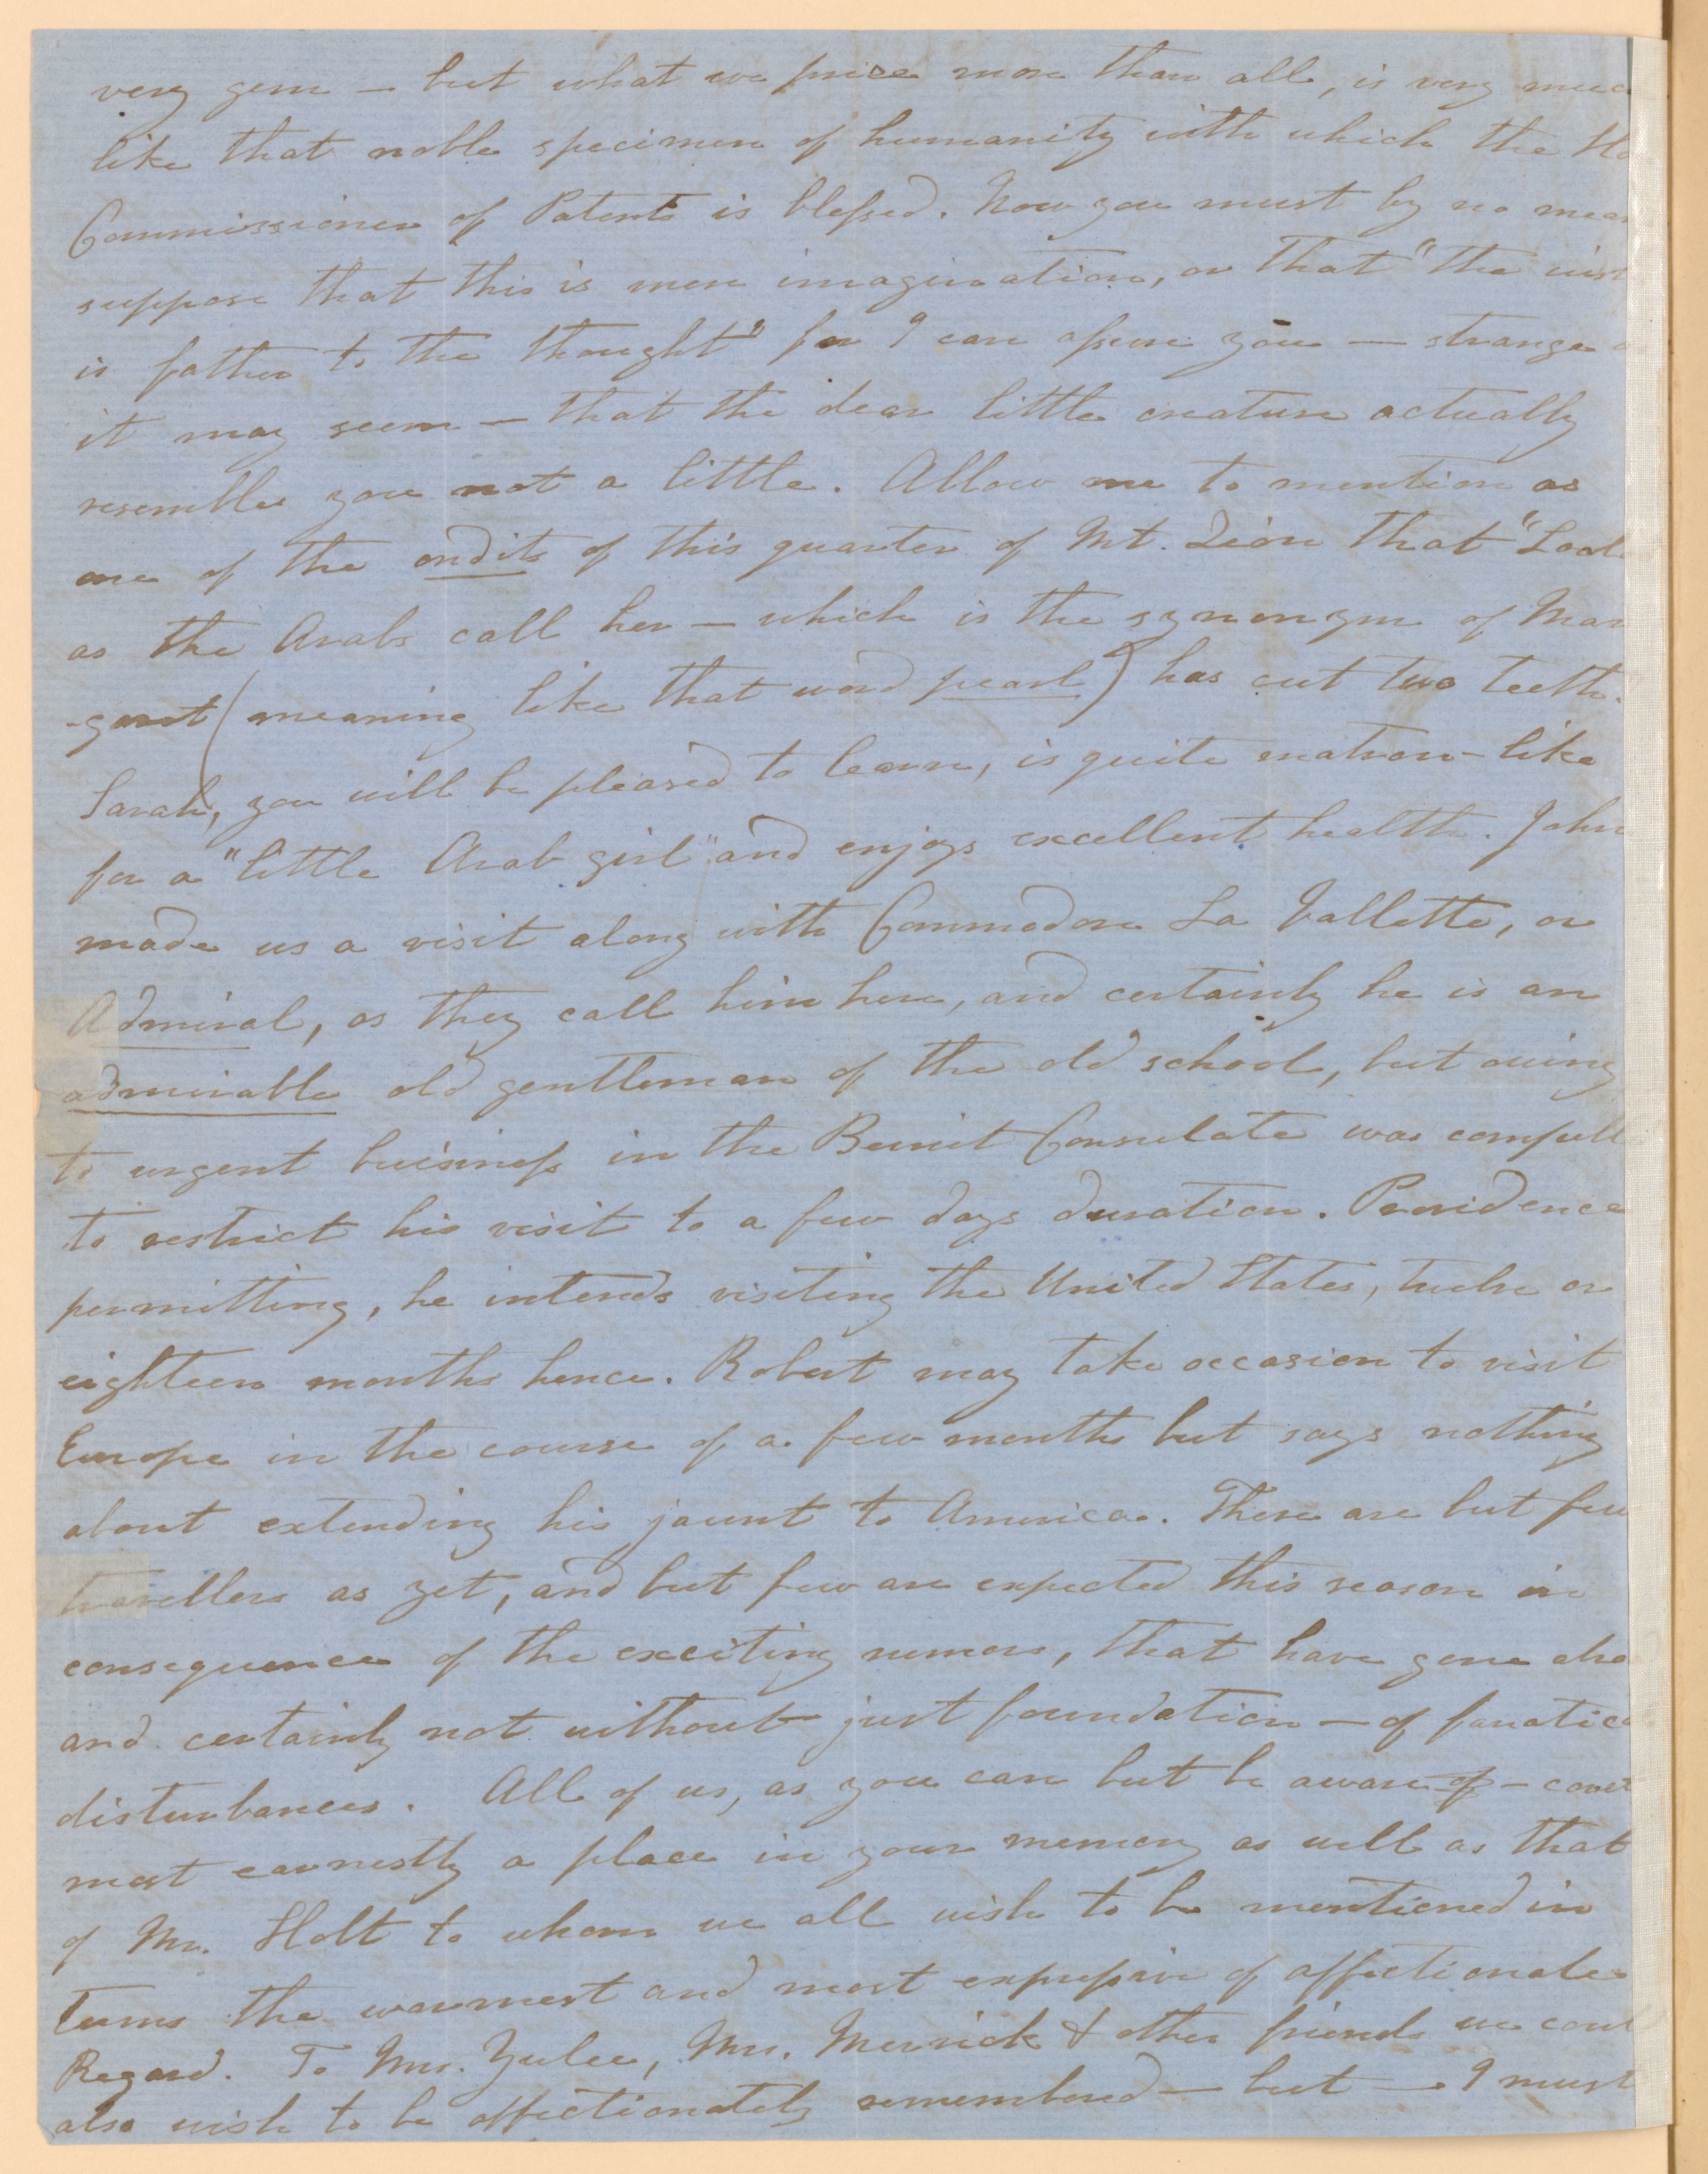 very gem — but what we prize more than all, is very muc
like that noble specimen of humanity with which the Ho
Commissioner of Patents is blessed. Now you must by no mea
suppose that this is mere imagination, or that "the wis
is father to the thought" for I can assure you — strange
it may seem — that the dear little creature actually
resembles you not a little. Allow me to mention as
one of the ondits of this quarter of Mt. Zion that "Lool
as the Arabs call her — which is the synonym of Mar
-garet (meaning like that word pearl) has cut two teeth.
Sarah, you will be pleased to learn, is quite matron-like
for a "little Arab girl" and enjoys excellent health. John
made us a visit along with Commodore La Vallette, or
Admiral, as they call him here, and certainly he is an
admirable old gentleman of the old school, but owing
to urgent buisiness in the Beirut Consulate was compell
to restrict his visit to a few days duration. Providence
permitting, he intends visiting the United States, twelve or
eighteen months hence. Robert may take occasion to visit
Europe in the course of a few months but says nothing
about extending his jaunt to America. There are but few
travellers as yet, and but few are expected this season in
consequence of the exciting rumors, that have gone abro
and certainly not without just foundation — of fanatica
disturbances. All of us, as you can but be aware of — covet
most earnestly a place in your memory as well as that
of Mr. Holt to whom we all wish to be mentioned in
terms the warmest and most expressive of affectionate
Regard. To Mrs. Yulee, Mrs. Merrick & other friends we coul
also wish to be affectionately remembered — but — I must